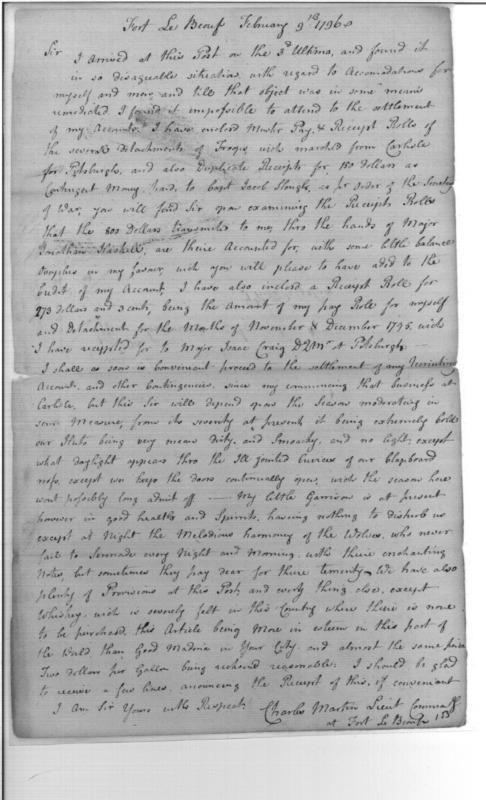 Fort Le Beouf February 9th 1796
Sir
I arrived at this Post on the 3d Ultimo, and found it
in so disagreable situation with regard to Accomodations for
myself and men, and till that object was in some means
remidied I found it impossible to attend to the settlement
of my Accounts. I have enclosd Muster Pay, & Receipt Rolls of
the several detachments of Troops wich marched from Carlisle
for Pitsburgh, and also Duplicate Receipts for 150 dollars as
Contingent Money, paid, to Capt Jacob Slough, as pr order of the Secretary
of War, you will find Sir upon examining the Receipts Rolls
that the 800 Dollars transmited to me, thro the hands of Major
Jonathan Haskell, are their Accounted for, with some little balance
in my favour, wich you will please to have aded to the
Credit of my Account, I have also inclosd a Receipt Roll for
273 dollars and 3 cents, being the Amount of my pay Roll for myself
and Detachment for the Months of November & December 1795, wich
I have receipted for to Major Isaac Craig DQMr at Pitsburgh
I shall as soon as Convenient proceed to the settlement of my Recruiting
Account, and other Contingencies, since my commencing that business at
Carlisle, but this Sir will depend upon the Season moderating in
some Measure, from its severity at present, it being extremely cold
our Huts being very mean Dirty, and Smoacky, and no light, except
what daylight appears thro the Ill jointed of our Clapboard
roofs, except we keep the doors continually open, wich the season here
wont possibly long admit off — My little Garrison is at present
however in good health and Spirits, having nothing to disturb us
except at Night the Melodious harmony of the Wolves, who never
fail to Serinade every Night and Morning, with their enchanting
Notes, but sometimes they pay dear for there temerity. We have also
plenty of Provisions at this Post, and every thing else, except
Whiskey, wich is severely felt in this Country where there is none
to be purchasd, this Article being More in esteem in this part of
the World, than Good Madeira in Your City, and almost the same price
Two dollars pr Gallon being reckoned reasonable. I should be glad
to receive a few lines, anouncing the Receipt of this, if convenient
I Am Sir Yours with Respect
Charles Martin Lieut
at Fort Le Beouf